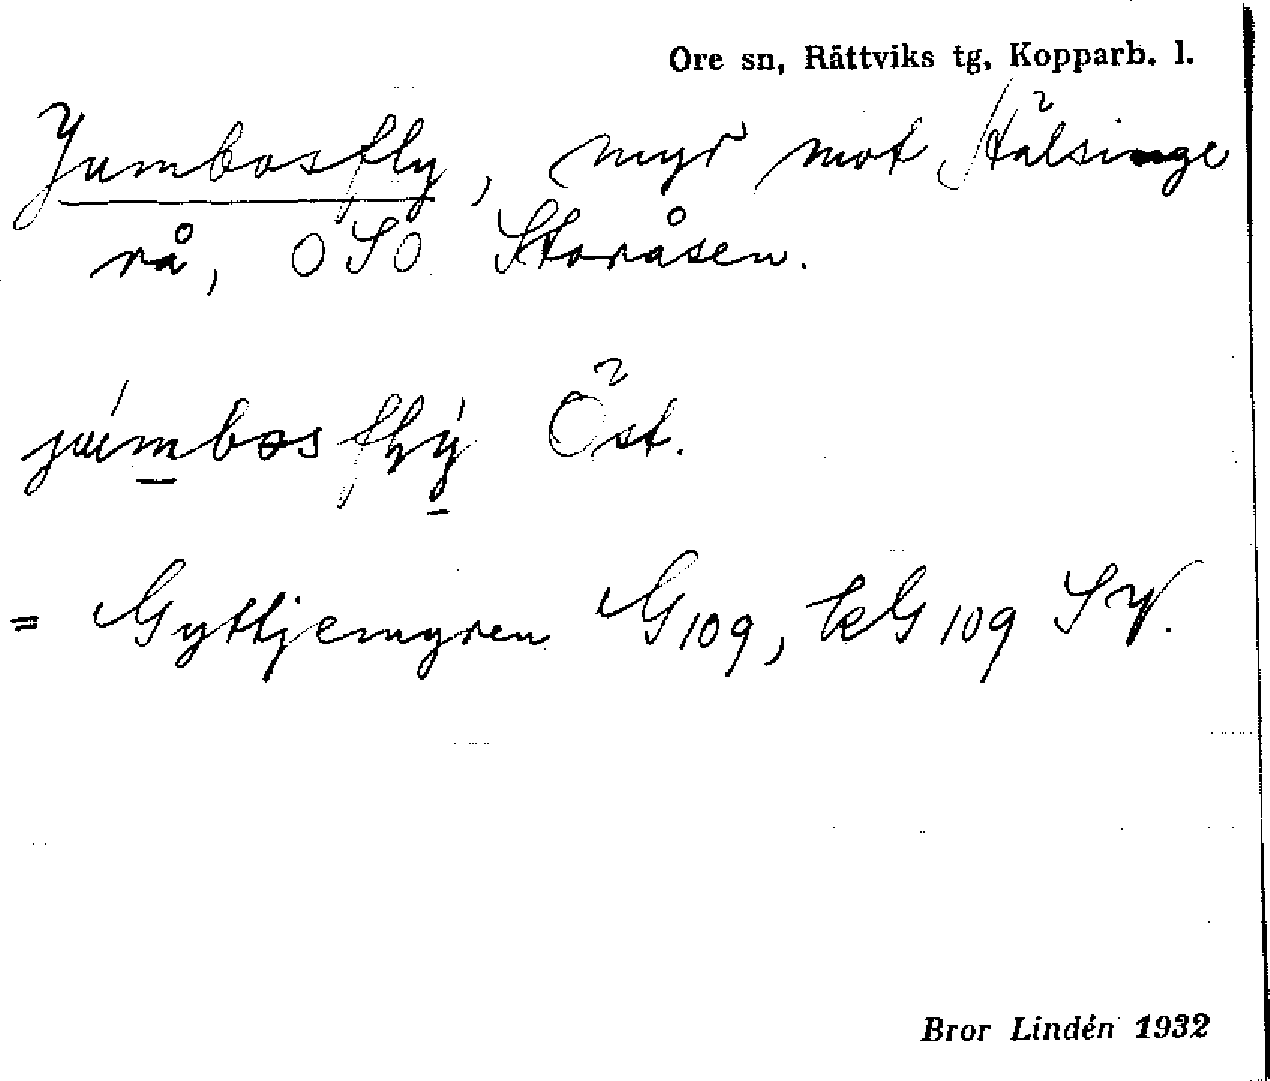 Ore sn, Rättviks tg, Kopparb. l.
Jumbosfly, myr mot Hälsinge
rå, OSO Storåsen.
júmbos flý Öst.
= Gyttjemyren G109, kG109 SV.
Bror Lindén 1932